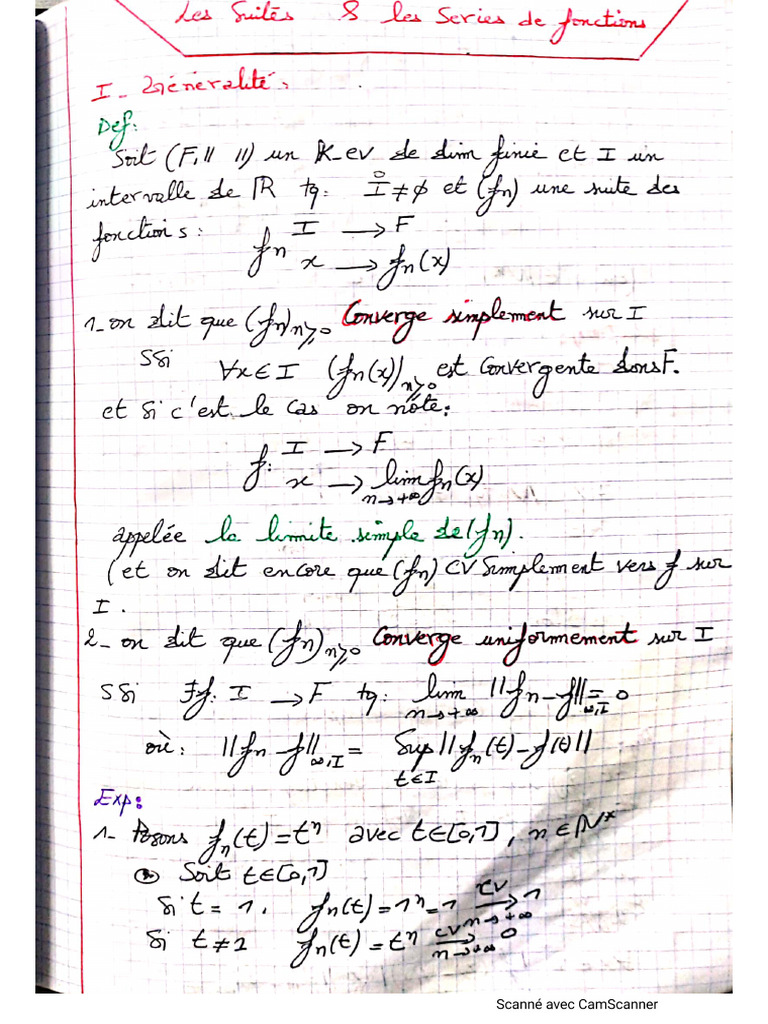 Les Suites & les Series de fonctions
I - Généralité.
Def:
Soit (F, || ||) un K-ev de dim finie et I un
intervalle de ℝ tq: I̊ ≠ ∅ et (fn) une suite des
fonctions: fn I → F
x → fn(x)
1- on dit que (fn)n≥0 Converge simplement sur I
SSi ∀x ∈ I (fn(x))n≥0 est Convergente dans F.
et si c'est le cas on note:
f: I → F
x → lim n→+∞ fn(x)
appelée la limite simple de (fn).
(et on dit encore que (fn) CV Simplement vers f sur
I.
2- on dit que (fn)n≥0 Converge uniformement sur I
SSi ∃f: I → F tq: lim n→+∞ ||fn-f||∞,I = 0
où: ||fn-f||∞,I = Sup t∈I ||fn(t)-f(t)||
Exp:
1- Posons fn(t) = tⁿ avec t∈[0,1], n ∈ ℕ*
Soit t∈[0,1]
Si t = 1. fn(t) = 1ⁿ = 1 CV→ n→+∞ 1
Si t ≠ 1 fn(t) = tⁿ CV→ n→+∞ 0
Scanné avec CamScanner